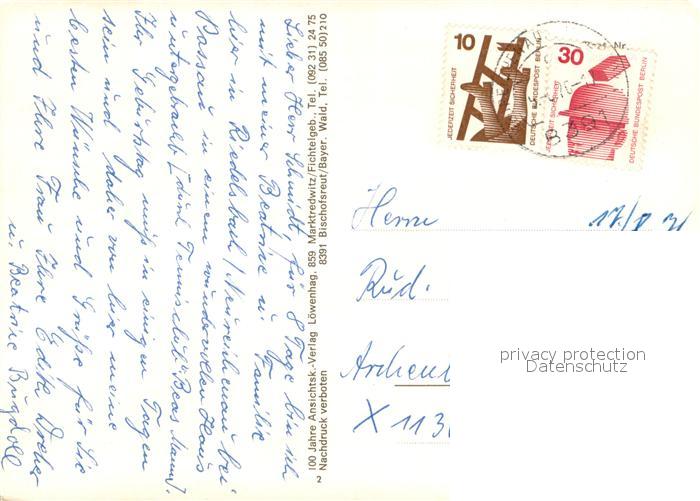 Lieber Herr Schmidt, für 8 Tage bin ich
mit meiner Beatrice u. Familie
hier in Riedelsbach / Neureichenau bei
Passau in einem wundervollen Haus
untergebracht durch Tennisclub
Ihr Geburtstag muß in einigen Tagen
sein und daher von hier meine
besten Wünsche und Grüße für Sie
und Ihre Frau Ihre Edith
u. Beatrice
100 Jahre Ansichtsk.-Verlag Löwenhag. 859 Marktredwitz/Fichtelgeb., Tel. (092 31) 24 75
Nachdruck verboten 8391 Bischofsreut/Bayer. Wald, Tel. (085 50) 210
2
10
JEDERZEIT SICHERHEIT
DEUTSCHE BUNDESPOST BERLIN
30
JEDERZEIT SICHERHEIT
DEUTSCHE BUNDESPOST BERLIN
Nr.
8391
Herrn
Rud.
X 113
privacy protection
Datenschutz